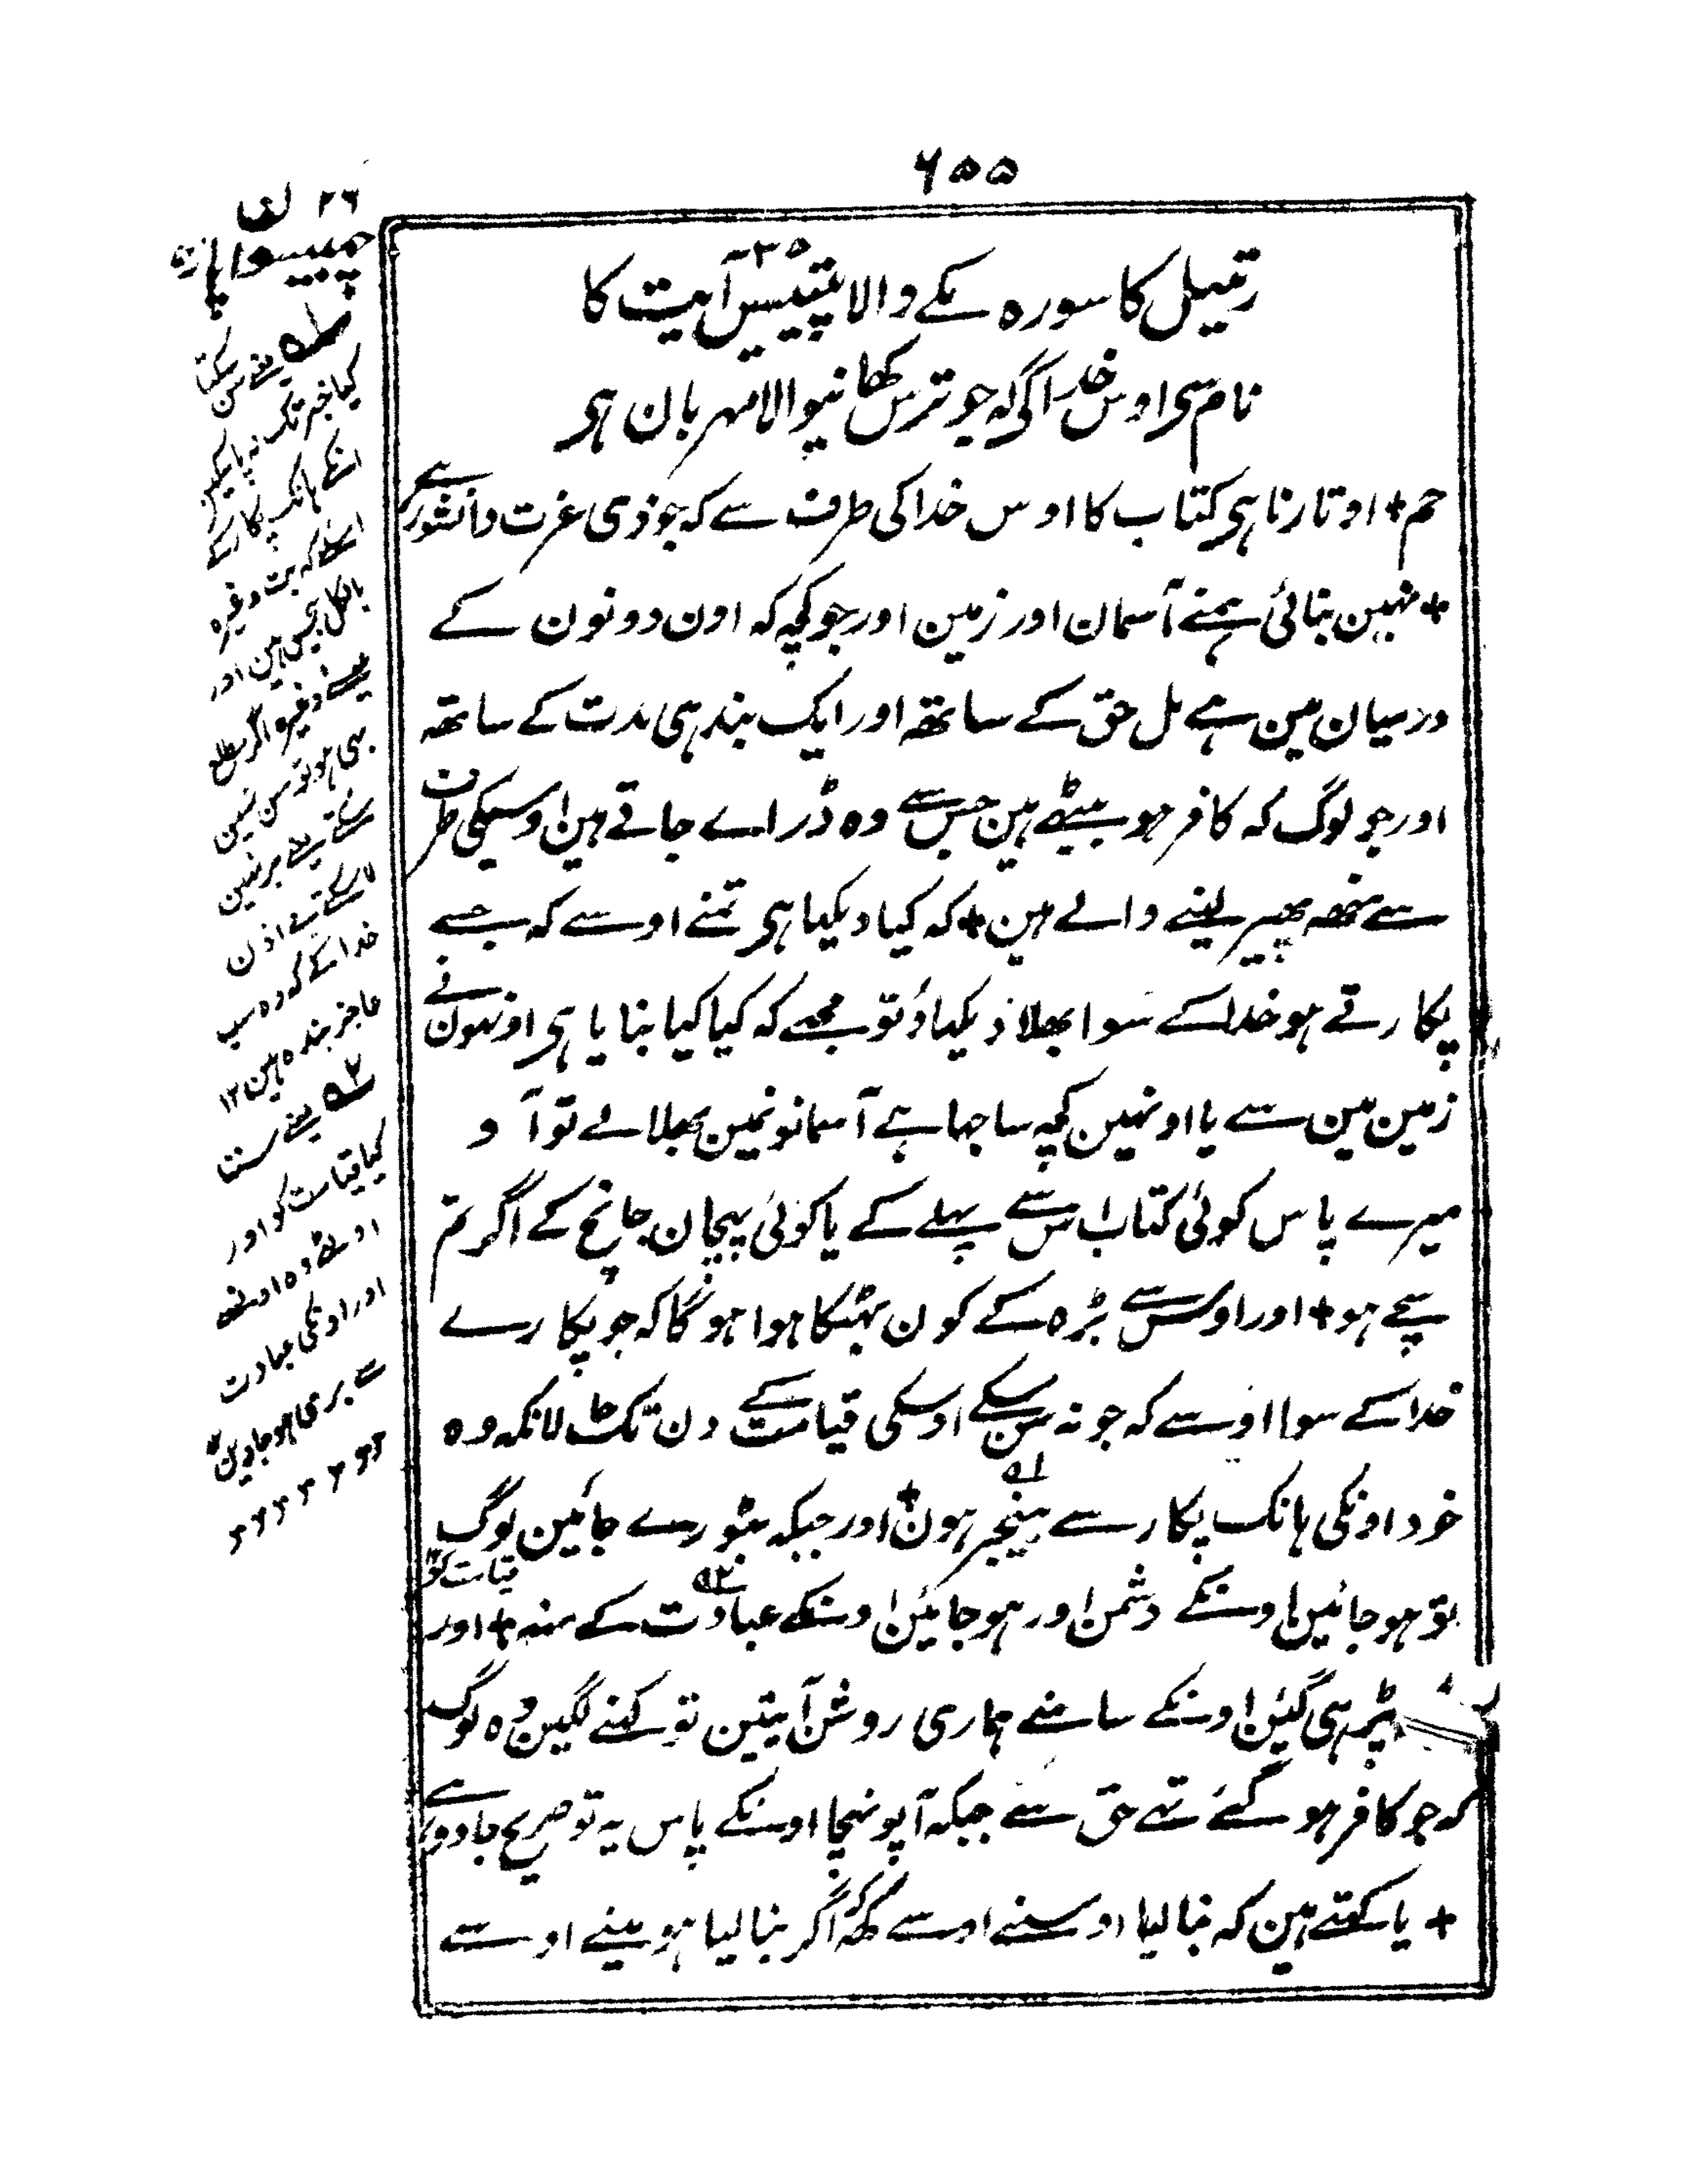 ۶۵۵
رتیل کا سورہ مکے والا پینتیس آیت کا
۳۵
نام سی اوس خدا کی کہ جو ترس کھانیوالا مہربان ہی
حم + اوتارنا ہی کتاب کا اوس خدا کی طرف سے کہ جو ذی عزت دانشور ہے
+ نہین بنائی ہمنے آسمان اور زمین اور جو کچہ کہ اون دونون کے
درمیان مین ہے مل حق کے ساتھ اور ایک بندہی مدت کے ساتھ
اور جو لوگ کہ کافر ہو بیٹھے ہین جس سے وہ ڈراے جاتے ہین اوسیکی طرف
سے منھ پھیر لینے والے ہین + کہ کیا دیکہا ہی تمنے اوسے کہ جسے
پکارتے ہو خدا کے سوا بھلا دیکہاؤ تو مجھے کہ کیا کیا بنایا ہی اونہون نے
زمین مین سے یا اونہین کچہ ساجہا ہے آسمانونمین بھلا لے تو آ و
میرے پاس کوئی کتاب اس سے پہلے کے یا کوئی پہچان جانچ کے اگر تم
سچے ہو + اور اوس سے بڑہ کے کون بہٹکا ہوا ہوگا کہ جو پکارے
خدا کے سوا اوسے کہ جو نہ سن سکے اوسکی قیامت کے دن تک حالانکہ وہ
خود اونکی ہانک پکار سے بیخبر ہون + اور جبکہ بٹورے جائین لوگ
قیامت کو
تو ہو جائین اونکے دشمن اور ہو جائین اونکے عبادت کے منہ + اور
پڑہی گئین اونکے سامنے ہماری روشن آیتین تو کہنے لگین وہ لوگ
کہ جو کافر ہو گئے تہے حق سے جبکہ آپونہچا اونکے پاس یہ تو صریح جادو ہے
+ یا کہتے ہین کہ بنا لیا اوسنے اوسے کہہ کہ اگر بنا لیا ہو مینے اوسے
۲۶
چھبیسوان پارہ
۱ یعنے سن سکتا
کیا خبر تک نہ
انکے ہانک پکار کے
اسلئے کہ بت وغیرہ
بالکل ہین اور
وغیرہ اگر
بہی ہو تو سن نہین
سکتے
خدا کے کہ وہ سب
عاجز بندہ ہین ۱۲
۲ یعنے سننا
کیا قیامت کو اور
اور اونکی عبادت
سے بری ہو جاوین